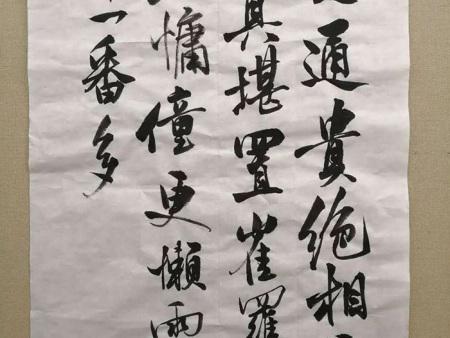 通貴絶相
真堪置雀羅
慵僮更懶雨
一番多